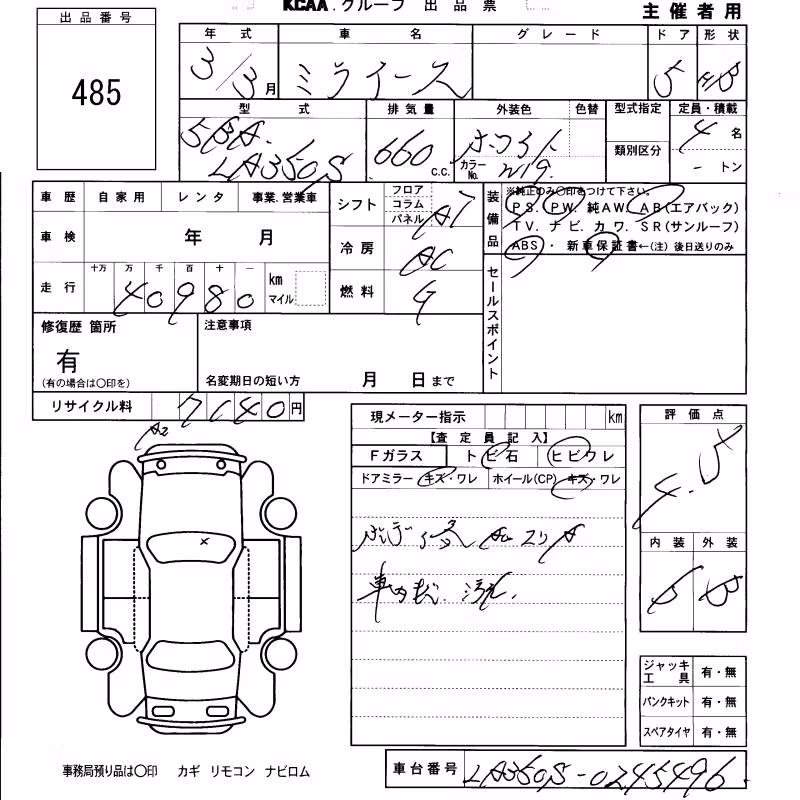 KCAA.グループ 出品票
主催者用
出品番号
485
年式 車名 グレード ドア 形状
3/3月 ミライース 5 HB
型式 排気量 外装色 色替 型式指定 定員・積載
5BA-
LA350S 660 c.c. ホワイト カラーNo. W19 類別区分 4名
- トン
車歴 自家用 レンタ 事業.営業車 シフト フロア コラム パネル AT 装備品 ※純正のみ○印をつけて下さい。
PS. PW. 純AW. AB(エアバック)
TV. ナビ. カワ. SR(サンルーフ)
ABS・ 新車保証書←(注) 後日送りのみ
車検 年 月 冷房 AC
走行 十万 万 千 百 十 一 40980 km マイル 燃料 G セールスポイント
修復歴 箇所 注意事項
有
(有の場合は○印を) 名変期日の短い方 月 日まで
リサイクル料 7640円
A2
現メーター指示 km
【査定員記入】
Fガラス トビ石 ヒビワレ
ドアミラー キズ・ワレ ホイール(CP) キズ・ワレ
車内
評価点
4.5
内装 外装
B B
ジャッキ工具 有・無
パンクキット 有・無
スペアタイヤ 有・無
事務局預り品は○印 カギ リモコン ナビロム
車台番号 LA350S-0245496